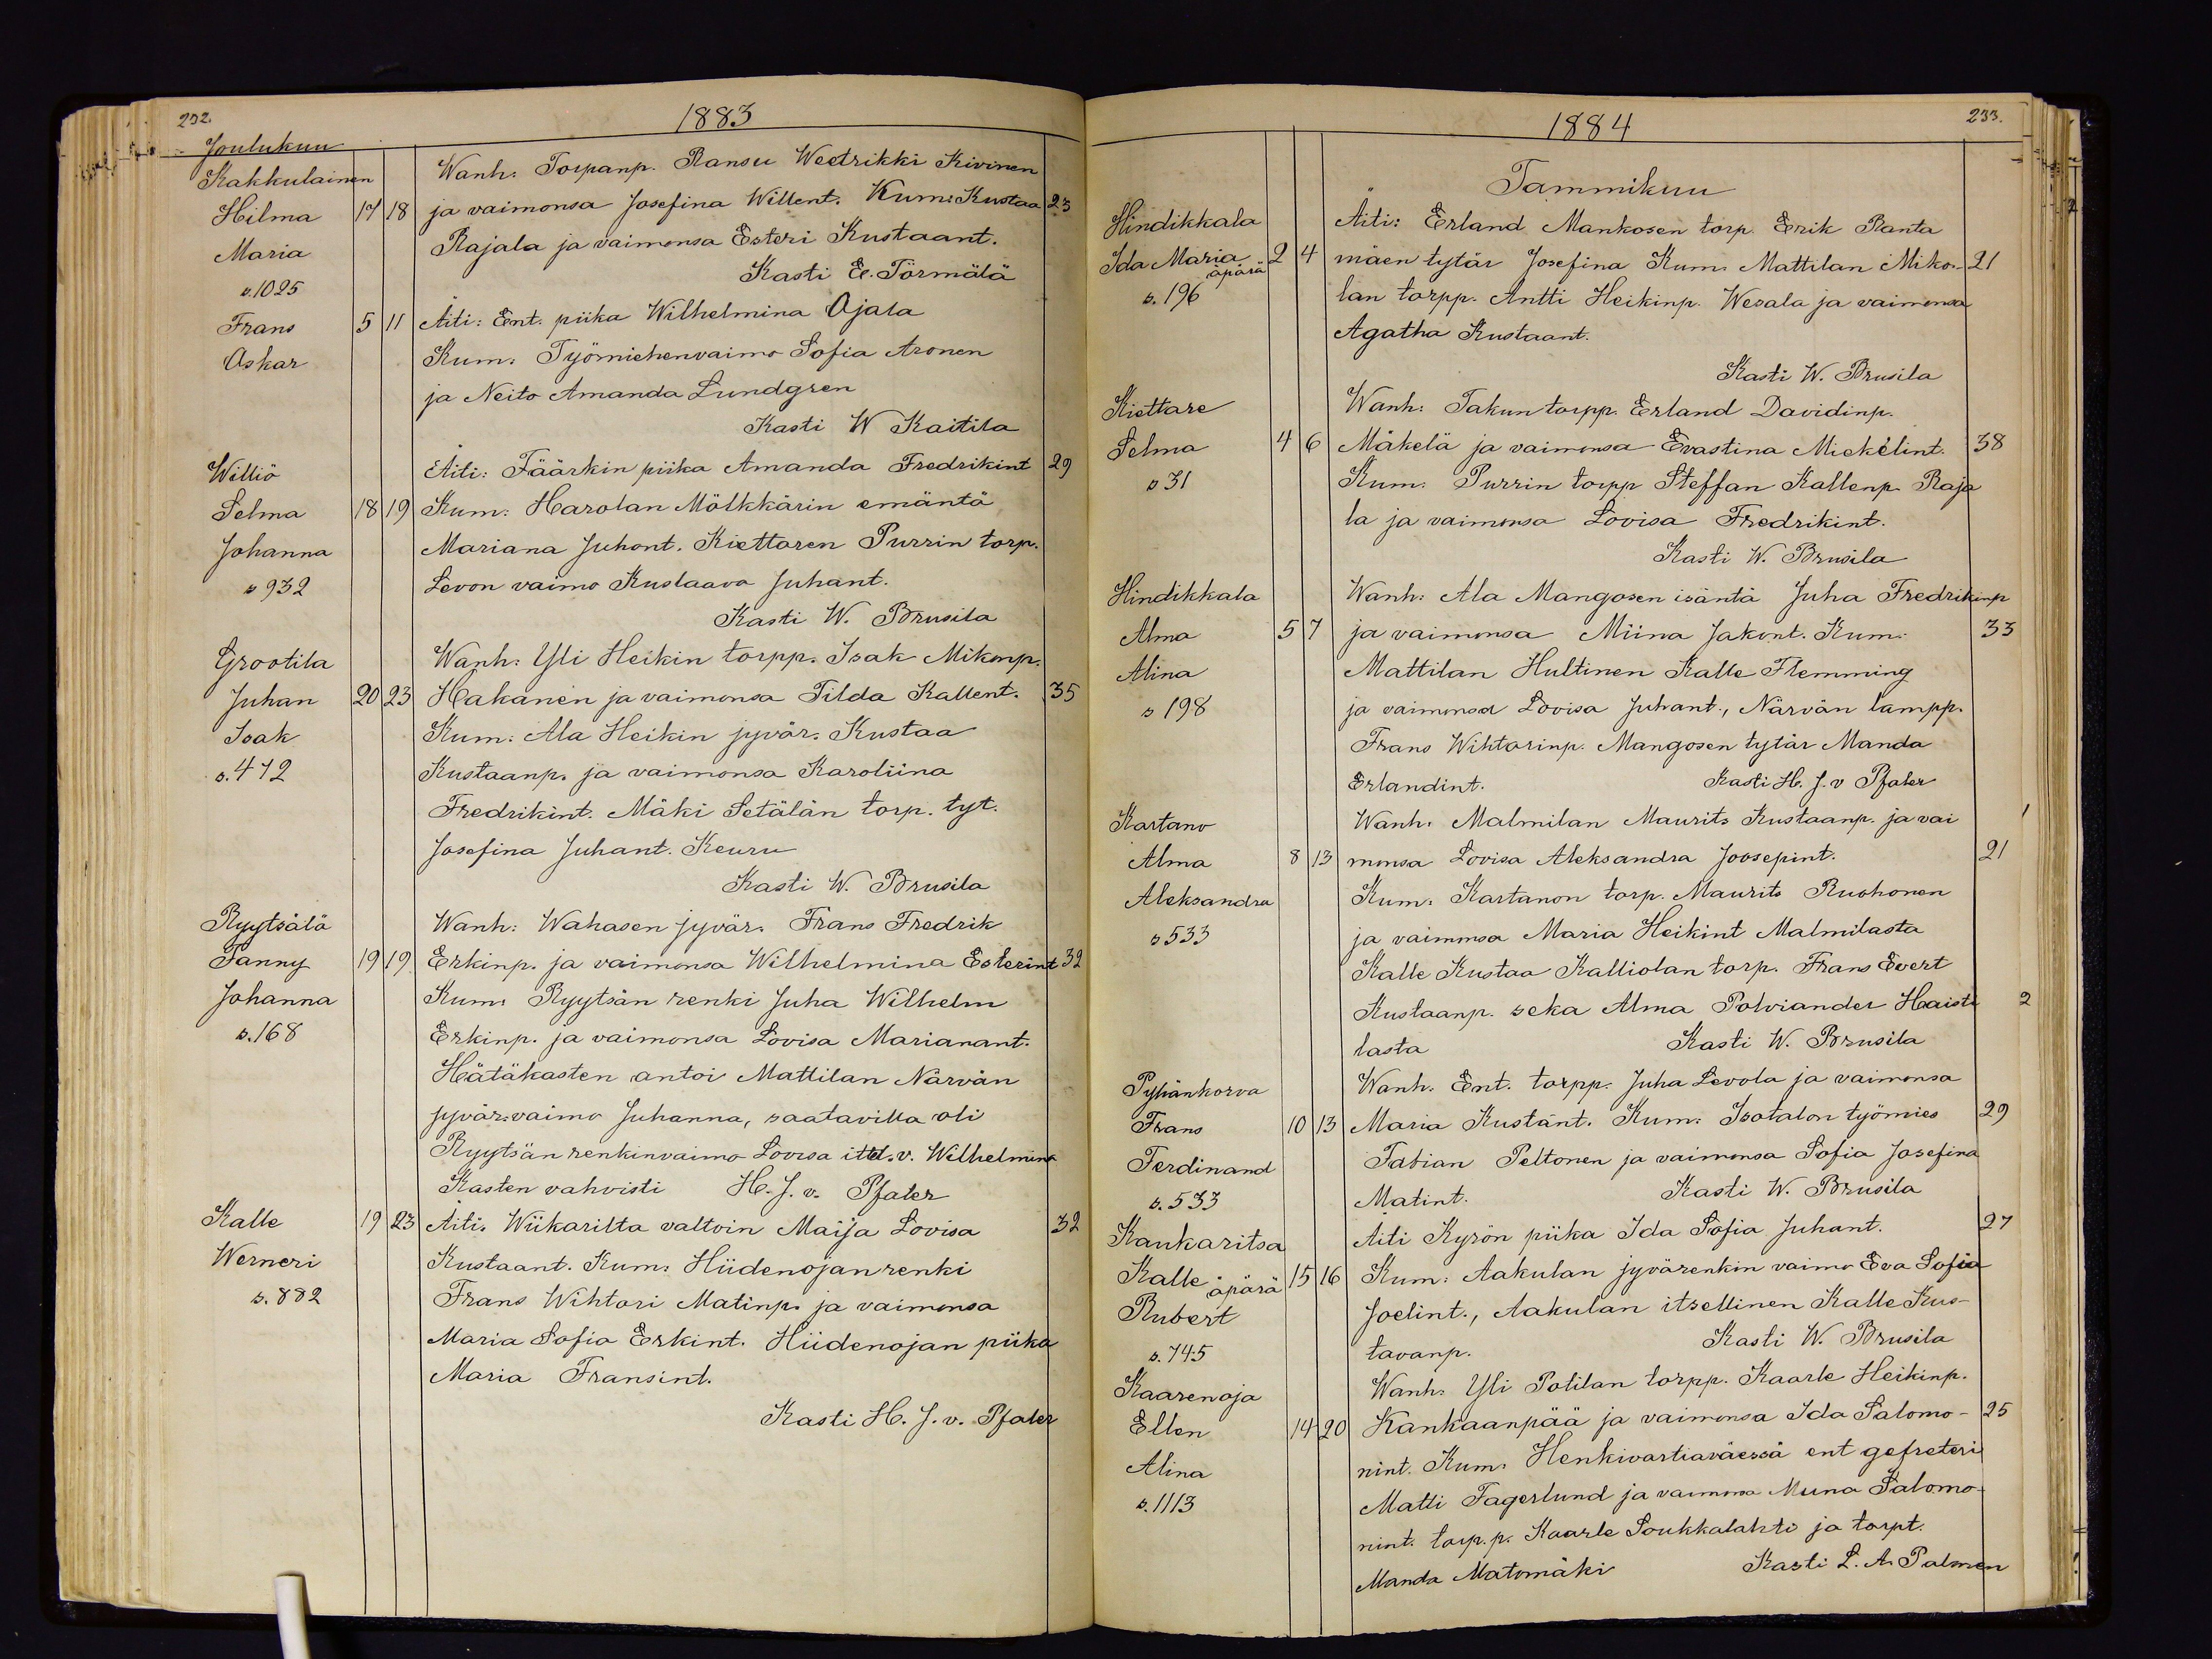 232.
1883
Joulukuu
Kakkulainen Wanh: Torpanp. Ransu Wedrikki Kivinen
Hilma 17 18 ja vaimonsa Josefina Willent. Kum: Kustaa 23
Maria Rajala ja vaimonsa Esteri Kustaant.
s.1025 Kasti E. Törmälä
Frans 5 11 Äiti: Ent. piika Wilhelmina Ojala
Oskar Kum: Työmiehenvaimo Sofia Aronen
ja Neito Amanda Lundgren
Kasti W Kaitila
Williö Äiti: Fäärkin piika Amanda Fredrikint 29
Selma 18 19 Kum: Harolan Mölkkärin emäntä
Johanna Mariana Juhont. Kiettaren Purrin torp.
s 932 Levon vaimo Kustaava Juhant.
Kasti W. Brusila
Grootila Wanh: Yli Heikin torpp. Isak Mikonp.
Juhan 20 23 Hakanen ja vaimonsa Tilda Kallent. 35
Isak Kum: Ala Heikin jyvär. Kustaa
s.472 Kustaanp. ja vaimonsa Karoliina
Fredrikint. Mäki Setälän torp. tyt.
Josefina Juhant. Keuru
Kasti W. Brusila
Ryytsälä Wanh: Wahasen jyvär. Frans Fredrik
Fanny 19 19 Erkinp. ja vaimonsa Wilhelmina Esterint 32
Johanna Kum: Ryytsän renki Juha Wilhelm
s.168 Erkinp. ja vaimonsa Lovisa Marianant.
Hätäkasten antoi Mattilan Närvän
jyvär.vaimo Juhanna, saatavilla oli
Ryytsän renkinvaimo Lovisa v. Wilhelmina
Kasten vahvisti H. J. v. Pfaler
Kalle 19 23 Äiti. Wiikarilta valtoin Maija Lovisa 32
Werneri Kustaant. Kum: Hiidenojan renki
s.882 Frans Wihtori Matinp. ja vaimonsa
Maria Sofia Erkint. Hiidenojan piika
Maria Fransint.
Kasti H. J. v. Pfaler
1884
233.
Tammikuu
Hindikkala Äiti: Erland Mankosen torp. Erik Ranta
Ida Maria äpärä 2 4 mäen tytär Josefina Kum. Mattilan Miko- 21
s.196 lan torpp. Antti Heikinp. Wesala ja vaimonsa
Agatha Kustaant.
Kasti W. Brusila
Kiettare Wanh: Takun torpp. Erland Davidinp.
Selma 4 6 Mäkelä ja vaimonsa Evastina Mickelint. 38
s 31 Kum: Purrin torpp Steffan Kallenp. Raja
la ja vaimonsa Lovisa Fredrikint.
Kasti W. Brusila
Hindikkala Wanh: Ala Mangosen isäntä Juha Fredrikinp
Alma 5 7 ja vaimonsa Miina Jakont. Kum: 33
Alina Mattilan Hultinen Kalle Flemming
s 198 ja vaimonsa Lovisa Juhant., Närvän lampp.
Frans Wihtorinp. Mangosen tytär Manda
Erlandint. Kasti H. J. v Pfaler
Kartano Wanh: Malmilan Maurits Kustaanp. ja vai 1
Alma 8 13 monsa Lovisa Aleksandra Joosepint. 21
Aleksandra Kum: Kartanon torp. Maurits Ruohonen
s 533 ja vaimonsa Maria Heikint Malmilasta
Kalle Kustaa Kalliolan torp. Frans Evert
Kustaanp. seka Alma Polviander Haisti 2
lasta Kasti W. Brusila
Pyhänkorva Wanh. Ent. torpp. Juha Levola ja vaimonsa
Frans 10 13 Maria Kustant. Kum: Isotalon työmies 29
Ferdinand Fabian Peltonen ja vaimonsa Sofia Josefina
s.533 Matint. Kasti W. Brusila
Kankaritsa Äiti Kyrön piika Ida Sofia Juhant. 27
Kalle äpärä 15 16 Kum: Aakulan jyvärenkin vaimo Eva Sofia
Rubert Joelint., Aakulan itsellinen Kalle Kus-
s.745 tavanp. Kasti W. Brusila
Kaarenoja Wanh: Yli Potilan torpp. Kaarle Heikinp.
Ellen 14 20 Kankaanpää ja vaimonsa Ida Salomo- 25
Alina nint. Kum: Henkivartiaväessä ent gefreteri
s.1113 Matti Fagerlund ja vaimonsa Miina Salomo-
nint. torp.p. Kaarle Soukkalahti ja torpt.
Manda Matomäki Kasti L. A. Palmen